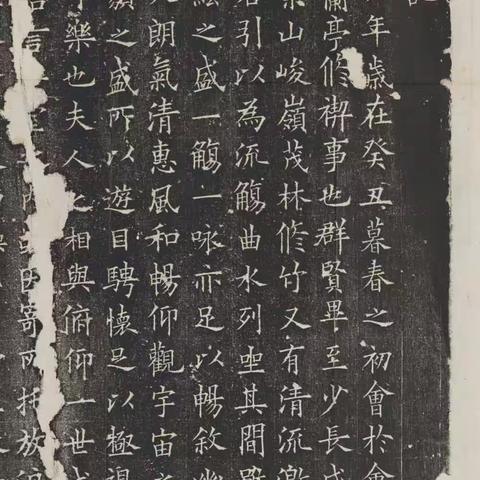 年歲在癸丑暮春之初會於會
蘭亭修禊事也群賢畢至少長咸
崇山峻嶺茂林修竹又有清流激
右引以為流觴曲水列坐其間雖
絃之盛一觴一咏亦足以暢敘幽
天朗氣清惠風和暢仰觀宇宙之
類之盛所以遊目騁懷足以極視
樂也夫人之相與俯仰一世或
言一因寄所託放浪